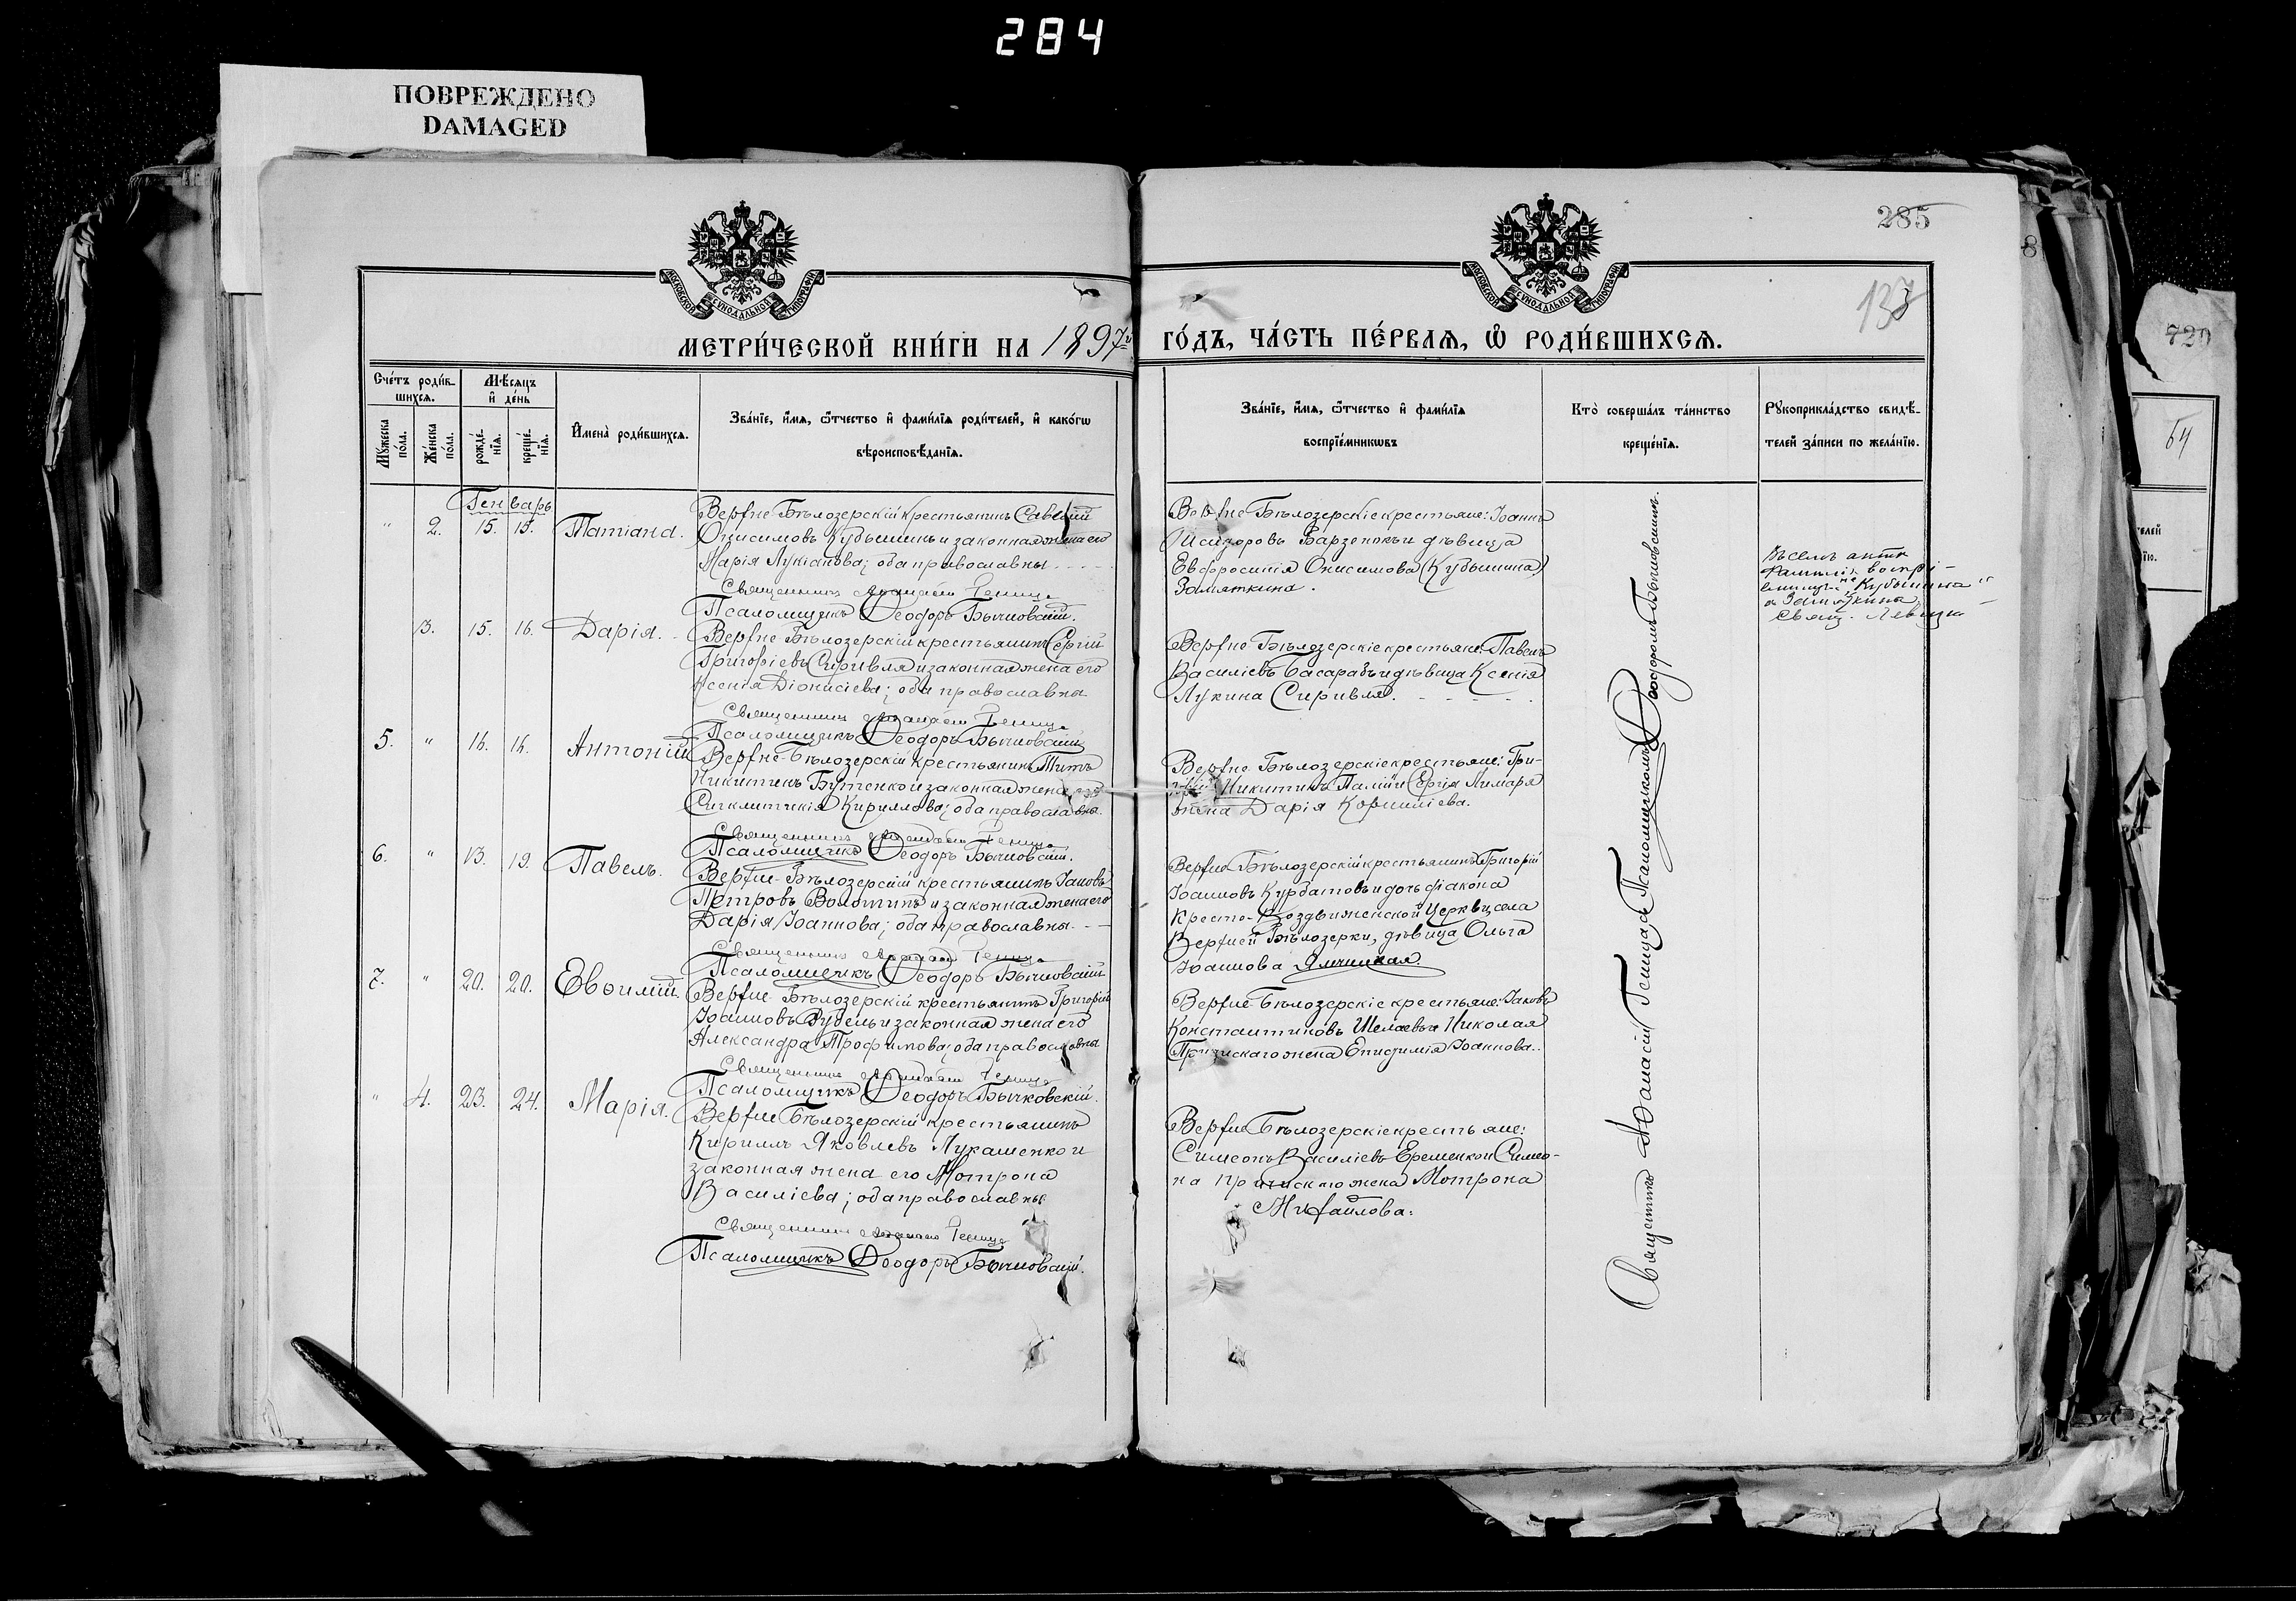 284
ПОВРЕЖДЕНО
DAMAGED
285
8
137
720
64
МОСКОВСКОЙ СѴНОДАЛЬНОЙ ТИПОГРАФІИ
МОСКОВСКОЙ СѴНОДАЛЬНОЙ ТИПОГРАФІИ
МЕТРИ́ЧЕСКОЙ КНИ́ГИ НА 1897й ГО́ДЪ, ЧА́СТЬ ПЕ́РВАЯ, Ѡ РОДИ́ВШИХСЯ.
Сче́тъ роди́в-
шихся.
Мѣ́сяцъ
и де́нь
Мꙋ́жеска
по́ла.
Же́нска
по́ла.
рожде́-
нїя.
креще́-
нїя.
Имена̀ роди́вшихся.
Зва́нїе, и́мя, ѻ́тчество и фами́лїя роди́телей, и како́гѡ
вѣроисповѣ́данїя.
Зва́нїе, и́мя, ѻ́тчество и фами́лїя
воспрїе́мникѡвъ
Кто̀ соверша́лъ та́инство
креще́нїя.
Рꙋкоприкла́дство свидѣ́-
телей за́писи по жела́нїю.
Генварь
" 2. 15. 15. Татіана.
Верхне-Бѣлозерскій крестьянинъ Савелій
Онисимовъ Кубышинъ и законная жена его
Марія Лукіанова; оба православны.
Священникъ Аѳанасій Геница
Псаломщикъ Ѳеодоръ Бычковскій.
Верхне-Бѣлозерскіе крестьяне: Іоаннъ
Исидоровъ Барзенокъ и дѣвица
Евфросинія Онисимова (Кубышина)
Замяткина.
Въ семъ актѣ
фамилія воспрі-
емницы не "Кубышина"
а Замяткина
Свящ.
3. 15. 16. Дарія.
Верхне-Бѣлозерскій крестьянинъ Сергій
Григоріевъ Сиривля и законная жена его
Ксенія Діонисіева; оба православны.
Священникъ Аѳанасій Геница
Псаломщикъ Ѳеодоръ Бычковскій
Верхне-Бѣлозерскіе крестьяне: Павелъ
Василіевъ Басарабъ и дѣвица Ксенія
Лукина Сиривля.
5. " 16. 16. Антоній
Верхне-Бѣлозерскій крестьянинъ Титъ
Никитинъ Бутенко и законная жена его
Синклитикія Кириллова; оба православны.
Священникъ Аѳанасій Геница
Псаломщикъ Ѳеодоръ Бычковскій.
Верхне-Бѣлозерскіе крестьяне: Гри-
горій Никитинъ Палій и Сергія Лимаря
жена Дарія Корниліева.
6. " 13. 19. Павелъ.
Верхне-Бѣлозерскій крестьянинъ Іаковъ
Петровъ Волошинъ и законная жена его
Дарія Іоаннова; оба православны.
Священникъ Аѳанасій Геница
Псаломщикъ Ѳеодоръ Бычковскій
Верхне-Бѣлозерскій крестьянинъ Григорій
Іоанновъ Курбатовъ и дочь діакона
Кресто-Воздвиженской Церкви, села
Верхней Бѣлозерки, дѣвица Ольга
Іоаннова
7. " 20. 20. Евѳимій.
Верхне-Бѣлозерскій крестьянинъ Григорій
Іоанновъ Рубель и законная жена его
Александра Трофимова; оба православны
Священникъ Аѳанасій Геница
Псаломщикъ Ѳеодоръ Бычковскій.
Верхне-Бѣлозерскіе крестьяне: Іаковъ
Константиновъ Шелаевъ и Николая
жена Епистимія Іоаннова.
" 4. 23. 24. Марія.
Верхне-Бѣлозерскій крестьянинъ
Кириллъ Яковлевъ Лукашенко и
законная жена его Мотрона
Василіева; оба православны
Священникъ Аѳанасій Геница
Псаломщикъ Ѳеодоръ Бычковскій.
Верхне-Бѣлозерскіе крестьяне:
Симеонъ Василіевъ Еременко и Симео-
на жена Мотрона
Михайлова.
Священникъ Аѳанасій Геница съ Псаломщикомъ Ѳеодоромъ Бычковскимъ.